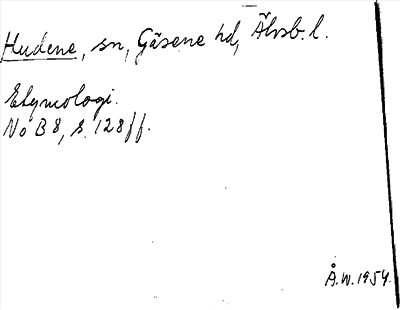 Hudene, sn, Gäsene hd, Älvsb. l.
Etymologi.
No B 8, s. 128 ff.
Å.W. 1954.